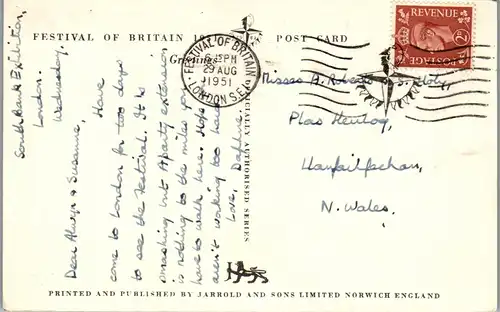 FESTIVAL OF BRITAIN 19
POST CARD
Greetings
FESTIVAL OF BRITAIN
PM
29 AUG
1951
LONDON S.E.1
REVENUE
POSTAGE
South Bank Exhibition,
London.
Wednesday.
Dear Alwyn & Susanne, Have
come to London for two days
to see the Festival. It is
smashing but A party extension
is nothing to the miles you
have to walk here. Hope
aren't working too hard
Love, Daphne
SPECIALLY AUTHORISED SERIES
Misses A. Roberts S.
Plas Heulog,
Llanfairfechan,
N. Wales.
PRINTED AND PUBLISHED BY JARROLD AND SONS LIMITED NORWICH ENGLAND